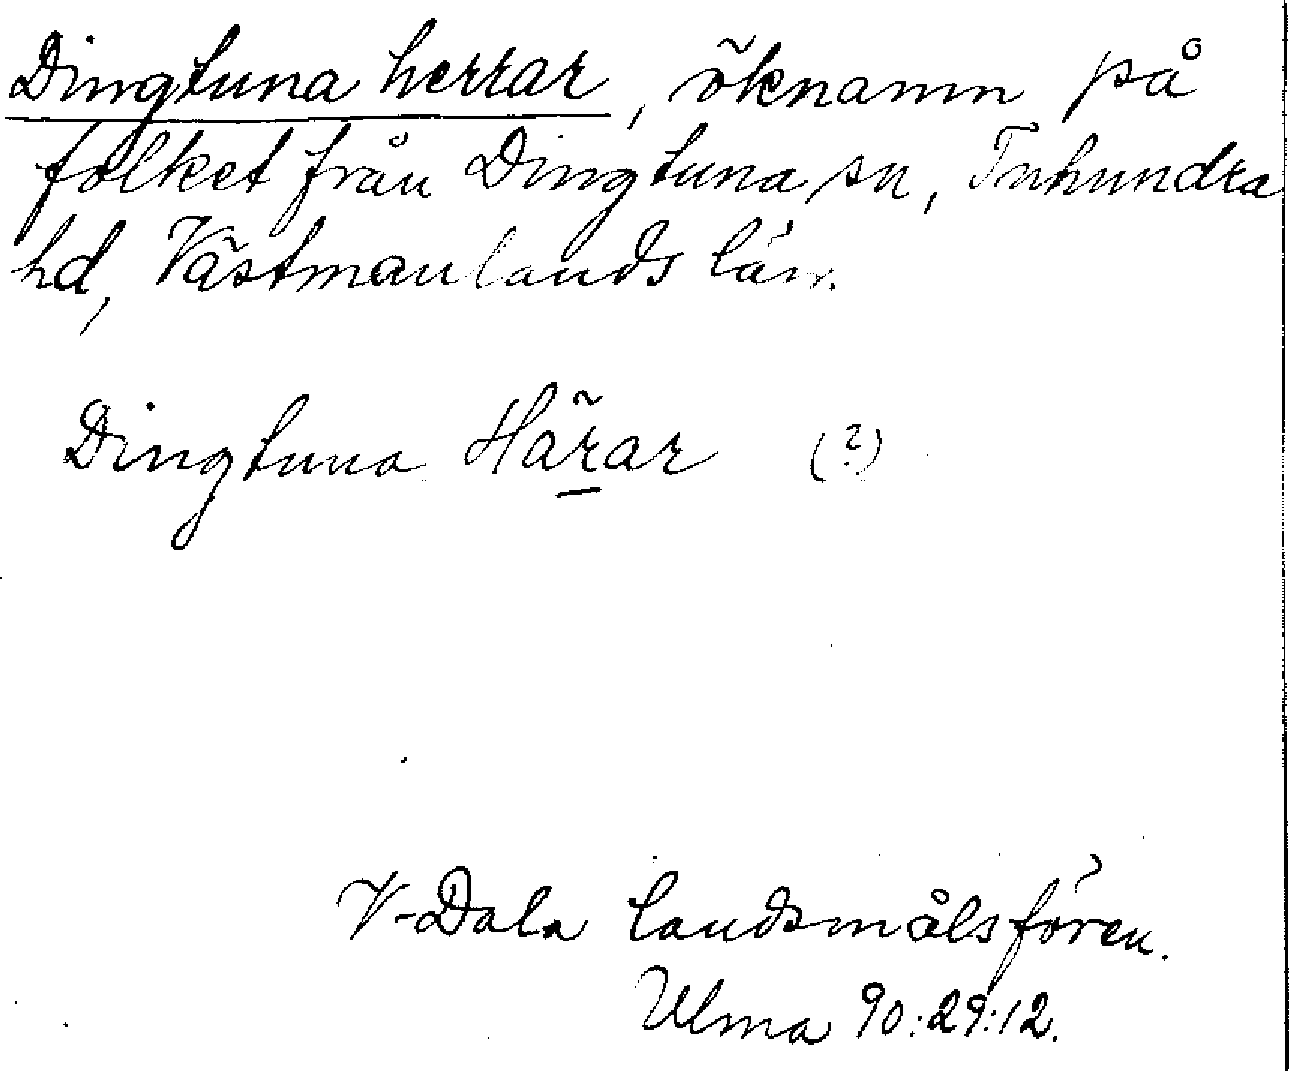 Dingtuna herrar, öknamn på
folket från Dingtuna sn, Tuhundra
hd, Västmanlands län.
Dingtuna Härar (?)
V-Dala landsmålsfören.
Ulma 90:29:12.